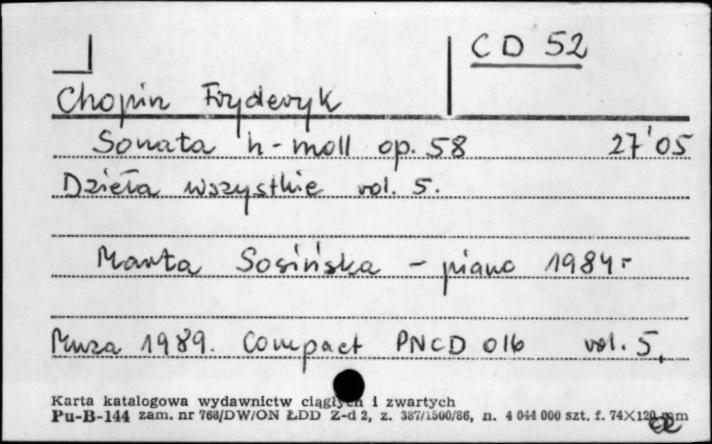 CD 52
Chopin Fryderyk
Sonata h-moll op. 58 27'05
Dzieła wszystkie vol. 5.
Marta Sosińska - piano 1984 r
Muza 1989. Compact PNCD 016 vol. 5.
Karta katalogowa wydawnictw ciągłych i zwartych
Pu-B-144 zam. nr 768/DW/ON ŁDD Z-d 2, z. 387/1500/86, n. 4 044 000 szt. f. 74X120 mm